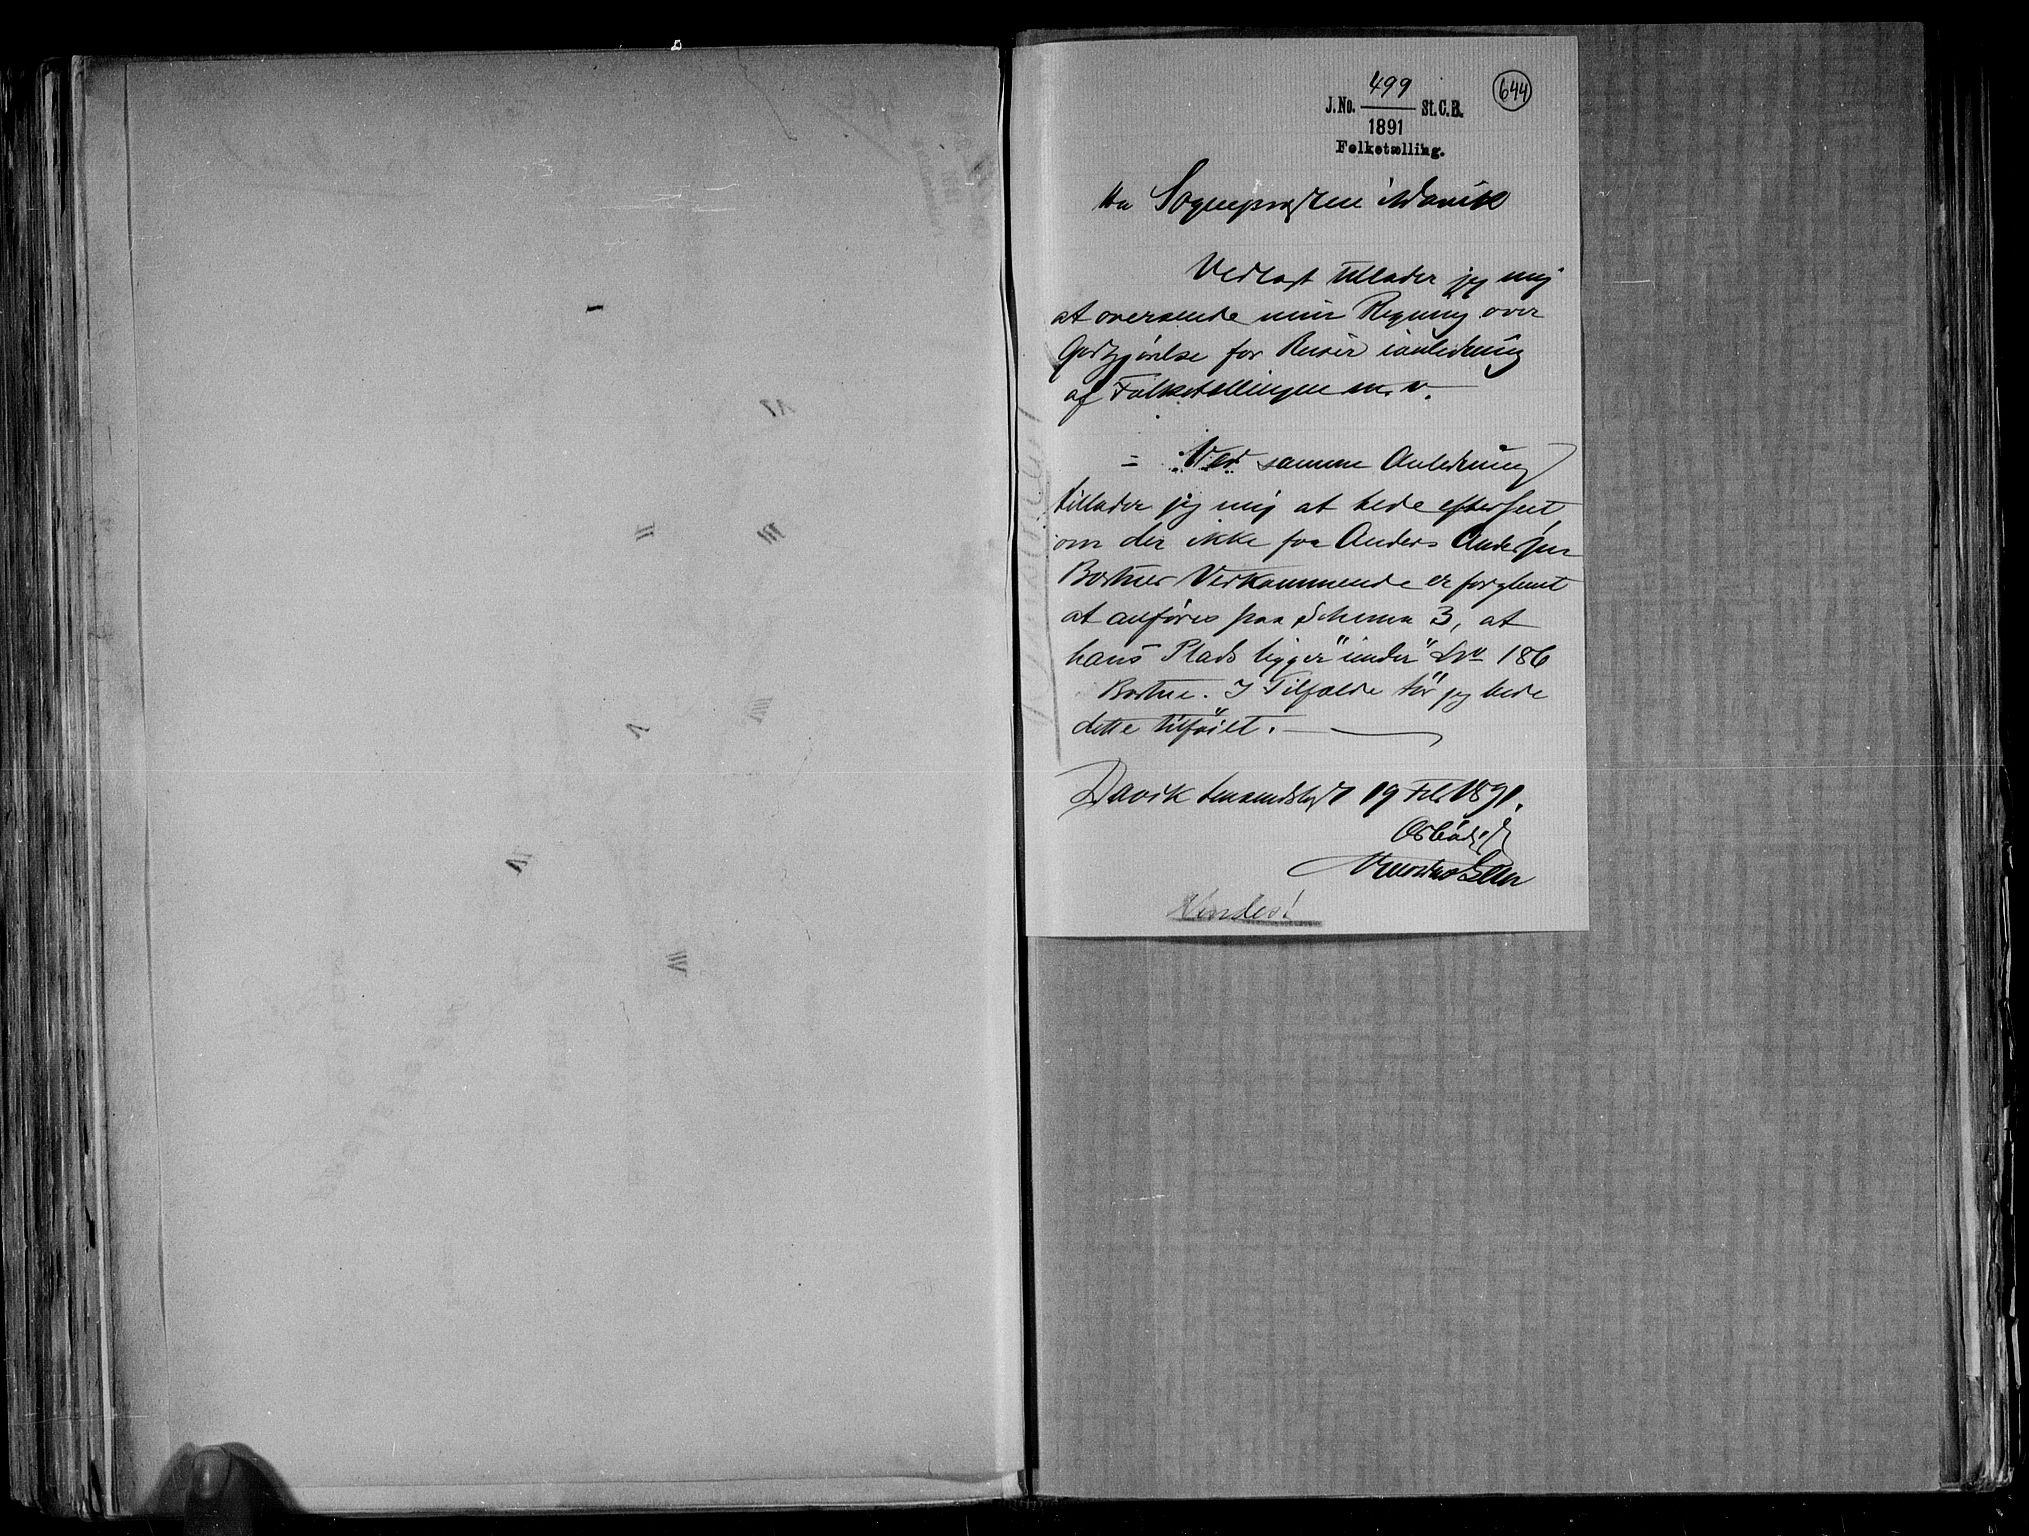 499
644
J.No. St.C.B.
1891
Folketælling.
Hr Sognepræsten i Davik
Vedlagt tillader jeg mig
at oversende min Regning over
Godtgjørelse for Reiser ianledning
af Folketællingen m. v.
= Ved samme Anledning
tillader jeg mig at bede efterseet
om der ikke for Anders Andersen
Bortnes Vedkommende er forglemt
at anføres paa Schema 3, at
hans Plads ligger "under" Lnr 186
Bortne. I Tilfælde tør jeg bede
dette tilføiet.
Davik Lensmandsbest 19 Feb 1891.
Ærbødigst
Vendes!
II
III
V
VI
VII
VIII